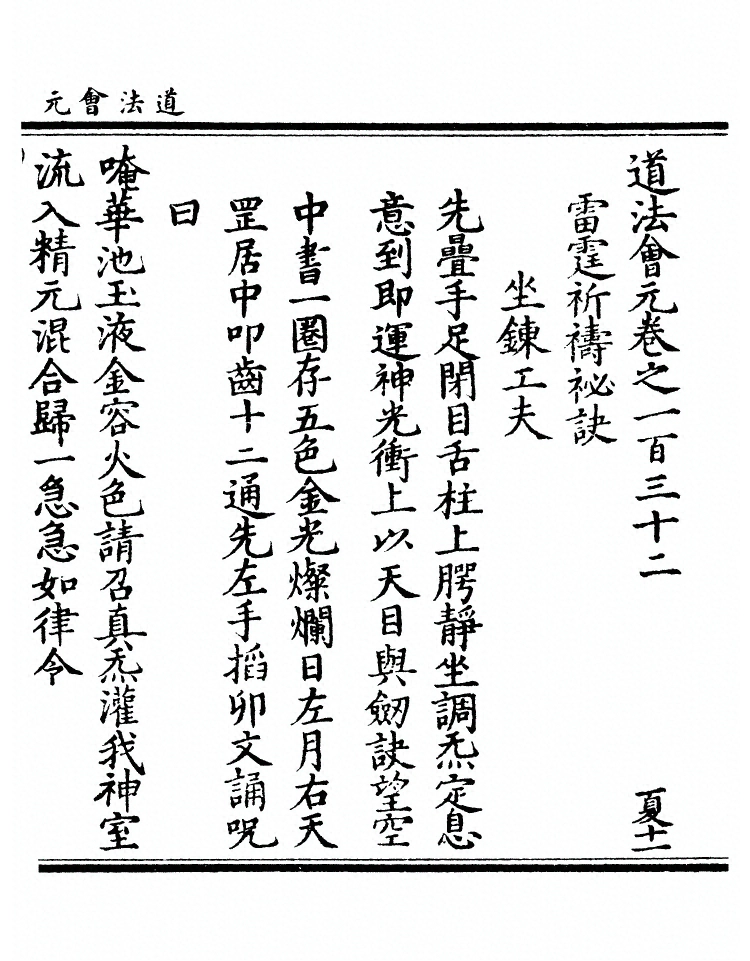 道法會元
道法會元卷之一百三十二
夏十一
雷霆祈禱祕訣
坐鍊工夫
先疊手足閉目舌柱上腭靜坐調炁定息
意到即運神光衝上以天目與劔訣望空
中書一圈存五色金光燦爛日左月右天
罡居中叩齒十二通先左手搯卯文誦呪
曰
唵華池玉液金容火色請召真炁灌我神室
流入精元混合歸一急急如律令